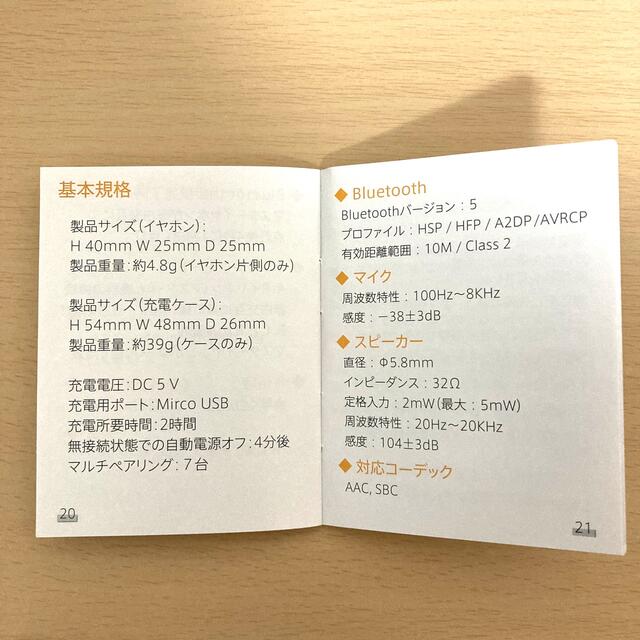 基本規格
製品サイズ(イヤホン):
H 40mm W 25mm D 25mm
製品重量:約4.8g(イヤホン片側のみ)
製品サイズ(充電ケース):
H 54mm W 48mm D 26mm
製品重量:約39g(ケースのみ)
充電電圧:DC 5 V
充電用ポート:Mirco USB
充電所要時間:2時間
無接続状態での自動電源オフ:4分後
マルチペアリング:7台
20
◆ Bluetooth
Bluetoothバージョン:5
プロファイル:HSP / HFP / A2DP /AVRCP
有効距離範囲:10M / Class 2
◆ マイク
周波数特性:100Hz～8KHz
感度:−38±3dB
◆ スピーカー
直径:Φ5.8mm
インピーダンス:32Ω
定格入力:2mW(最大:5mW)
周波数特性:20Hz～20KHz
感度:104±3dB
◆ 対応コーデック
AAC, SBC
21